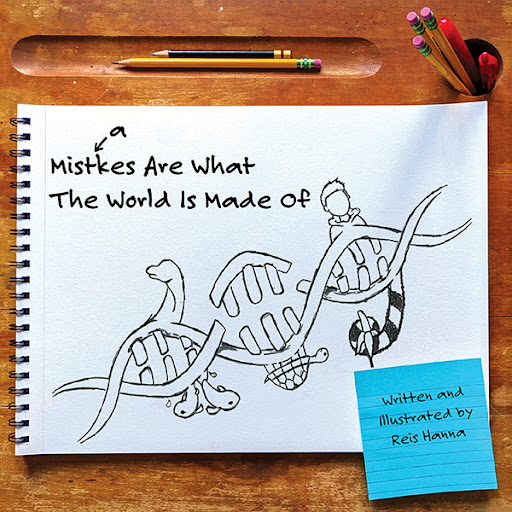 a
Mistkes Are What
The World Is Made Of
Written and
Illustrated by
Reis Hanna